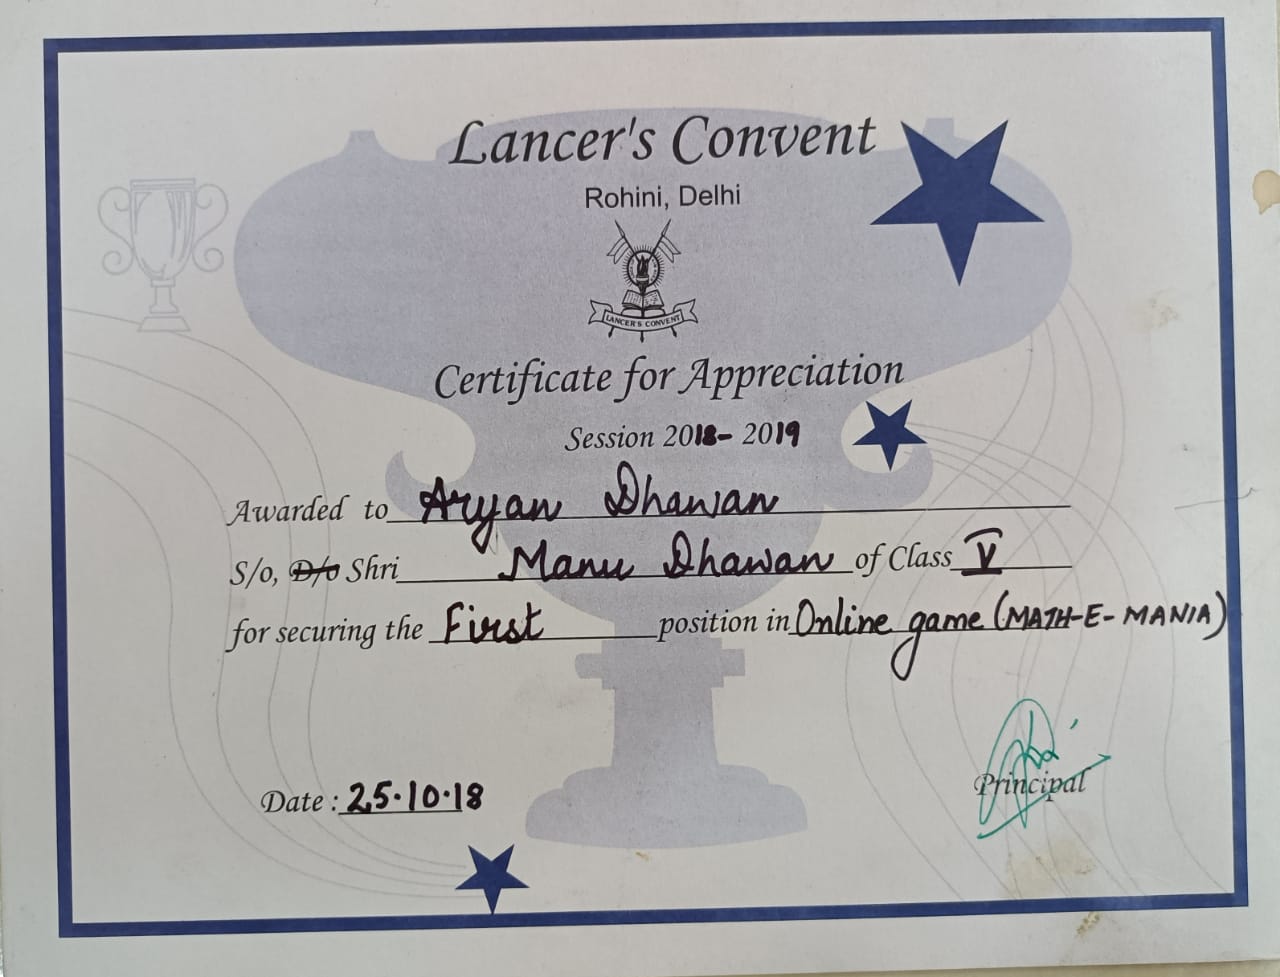 Lancer's Convent
Rohini, Delhi
LANCER'S CONVENT
Certificate for Appreciation
Session 2018- 2019
Awarded to Aryan Dhawan
S/o, D/o Shri Manu Dhawan of Class V
for securing the First position in Online game (MATH-E-MANIA)
Date : 25.10.18
Principal